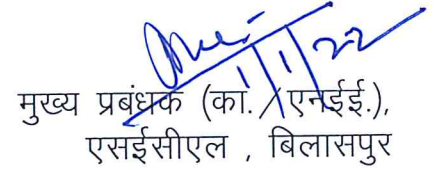 1/1/22
मुख्य प्रबंधक (का. / एनईई.),
एसईसीएल , बिलासपुर